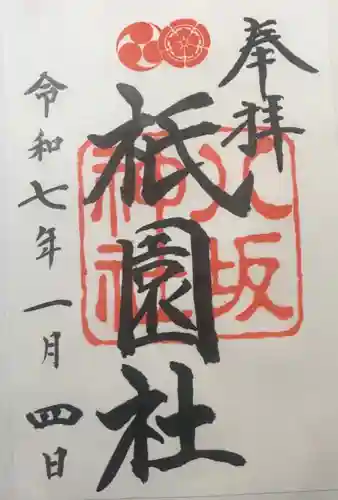 奉拝
八坂神社
祇園社
令和七年一月四日